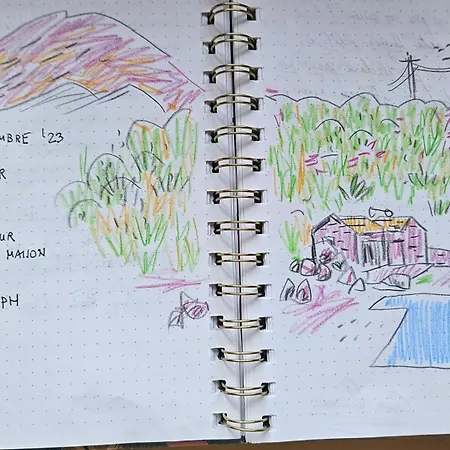 MBRE '23
R
UR
MAISON
PH